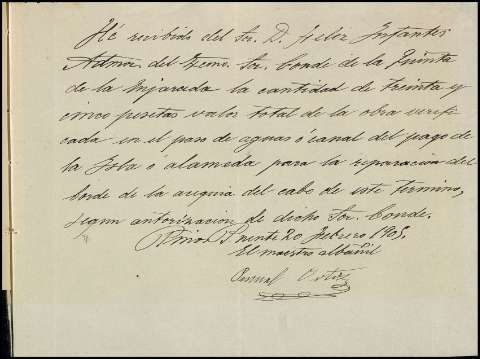 He recibido del Sor. D. Felix Infantes
Admor. del Excmo. Sor. Conde de la Quinta
de la Enjarada la cantidad de treinta y
cinco pesetas valor total de la obra verifi
cada en el paso de aguas ó canal del pago de
la Isla ó alameda para la reparación del
borde de la acequia del cabo de este termino,
segun autorizacion de dicho Sor. Conde.
Pinos Puente 20 Febrero 1905.
El maestro albañil
Pascual Ortiz